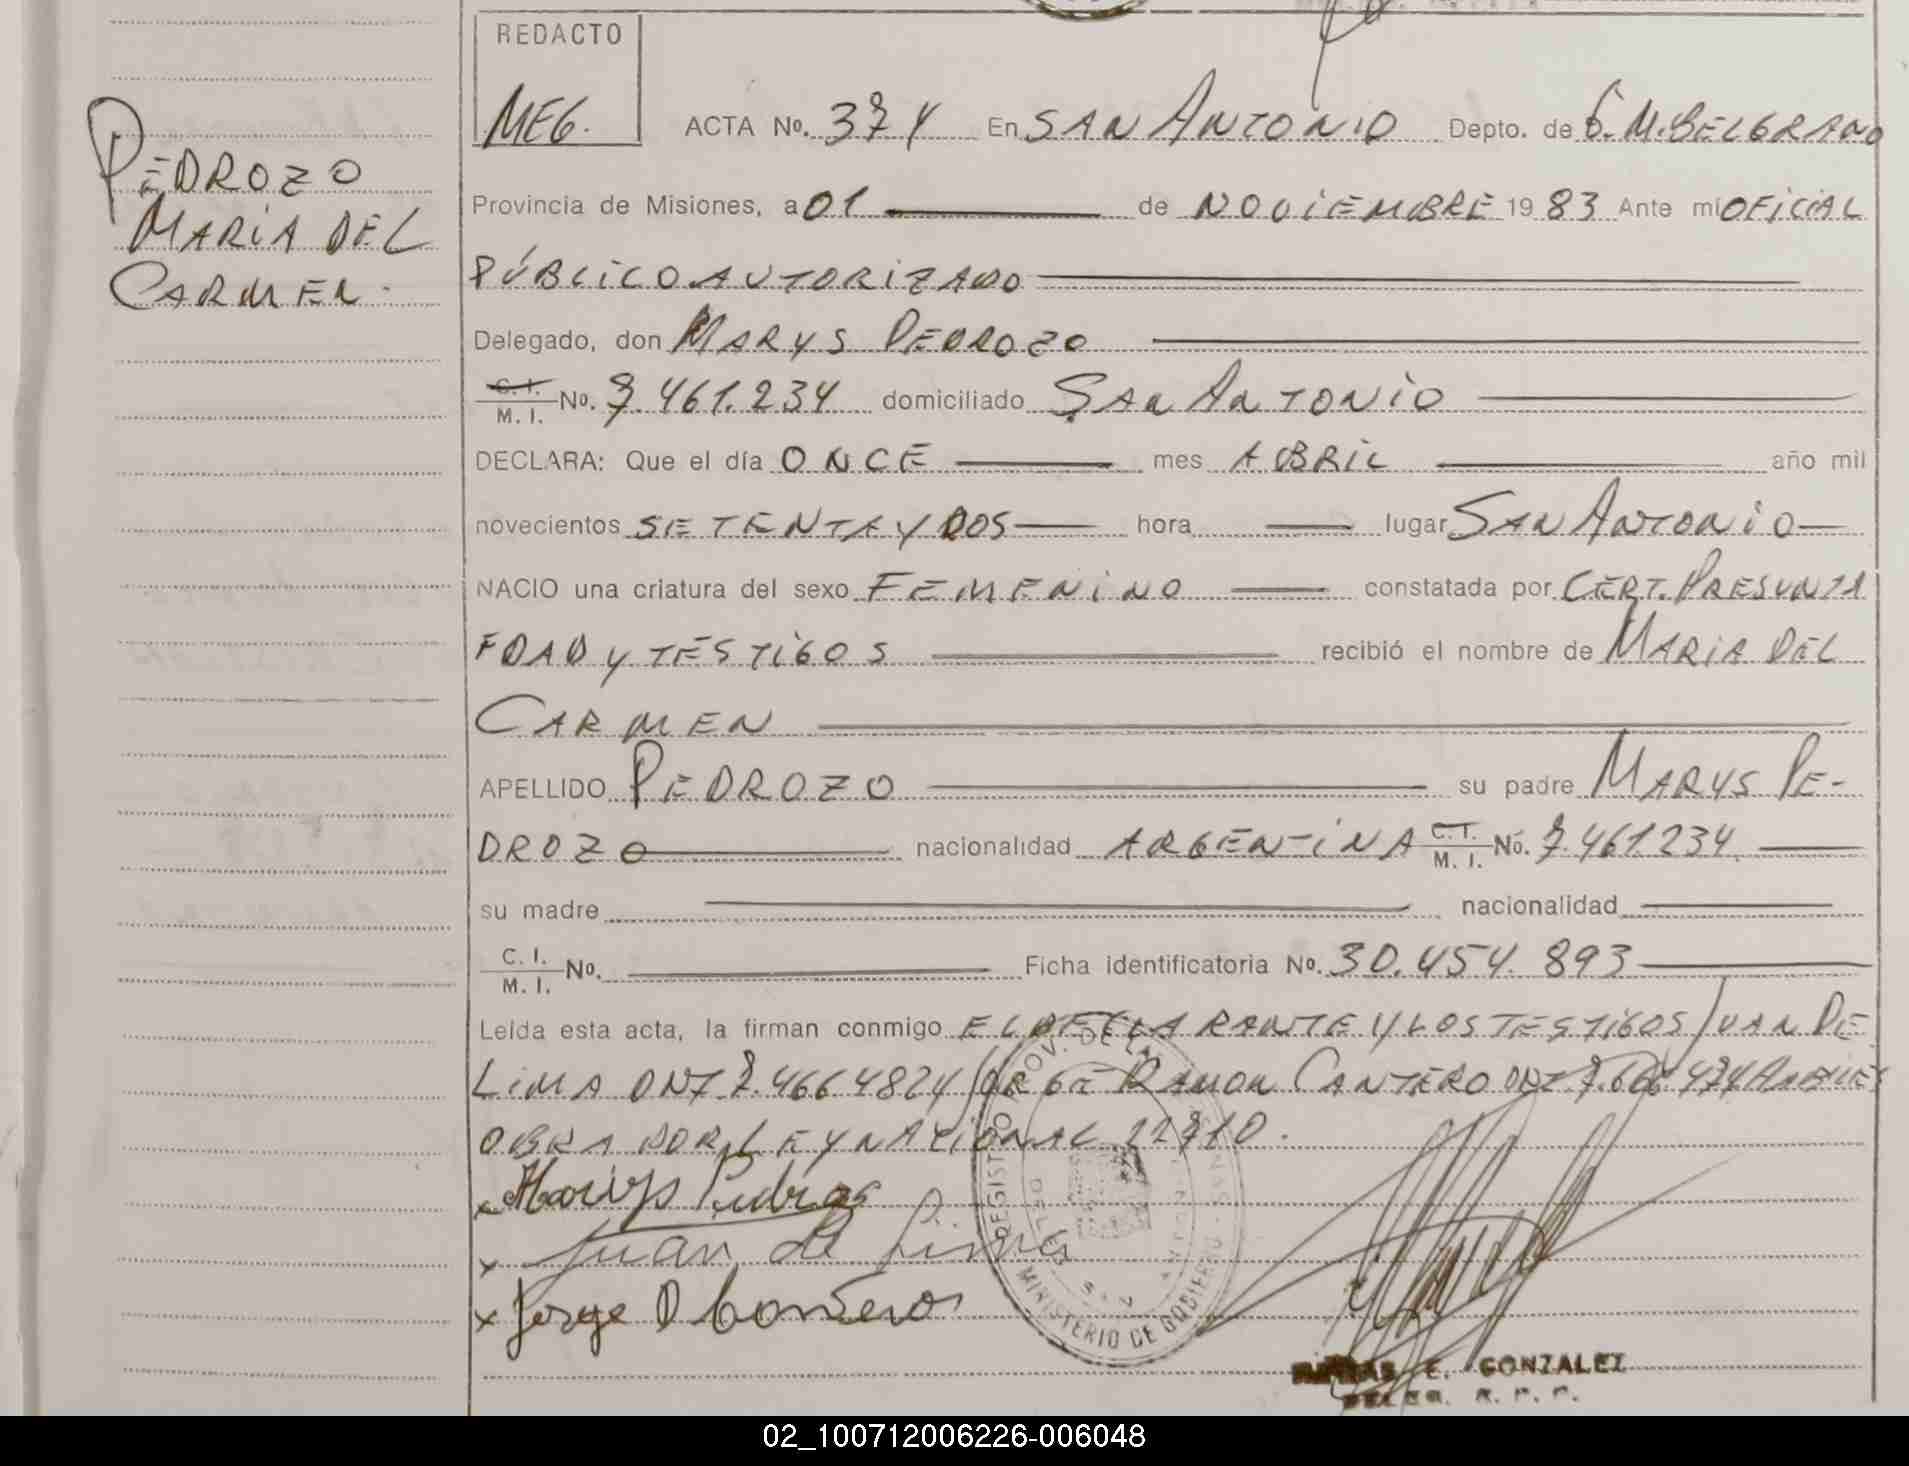 REDACTO
MEG.
ACTA No. 374 En SAN ANTONIO Depto. de G. M. BELGRANO
PEDROZO
MARIA DEL
CARMEN.
Provincia de Misiones, a 01 de NOVIEMBRE 1983 Ante mi OFICIAL
PÚBLICO AUTORIZADO
Delegado, don MARYS PEDROZO
C. I.
M. I. No. 7.461.234 domiciliado SAN ANTONIO
DECLARA: Que el día ONCE mes ABRIL año mil
novecientos SETENTA Y DOS hora lugar SAN ANTONIO
NACIO una criatura del sexo FEMENINO constatada por CERT. PRESUNTA
EDAD Y TESTIGOS recibió el nombre de MARIA DEL
CARMEN
APELLIDO PEDROZO su padre MARYS PE-
DROZO nacionalidad ARGENTINA C. I.
M. I. No. 7.461.234
su madre nacionalidad
C. I.
M. I. No. Ficha identificatoria No. 30.454.893
Leída esta acta, la firman conmigo EL DECLARANTE Y LOS TESTIGOS JUAN DE
LIMA DNI 7.466.482 Y JORGE RAMON CANTERO DNI
OBRA POR LEY NACIONAL 22710.
x Marys Pedrozo
x Juan de Lima
x Jorge
REGISTRO PROV. DE LAS
MINISTERIO DE GOBIERNO
E. GONZALEZ
02_100712006226-006048